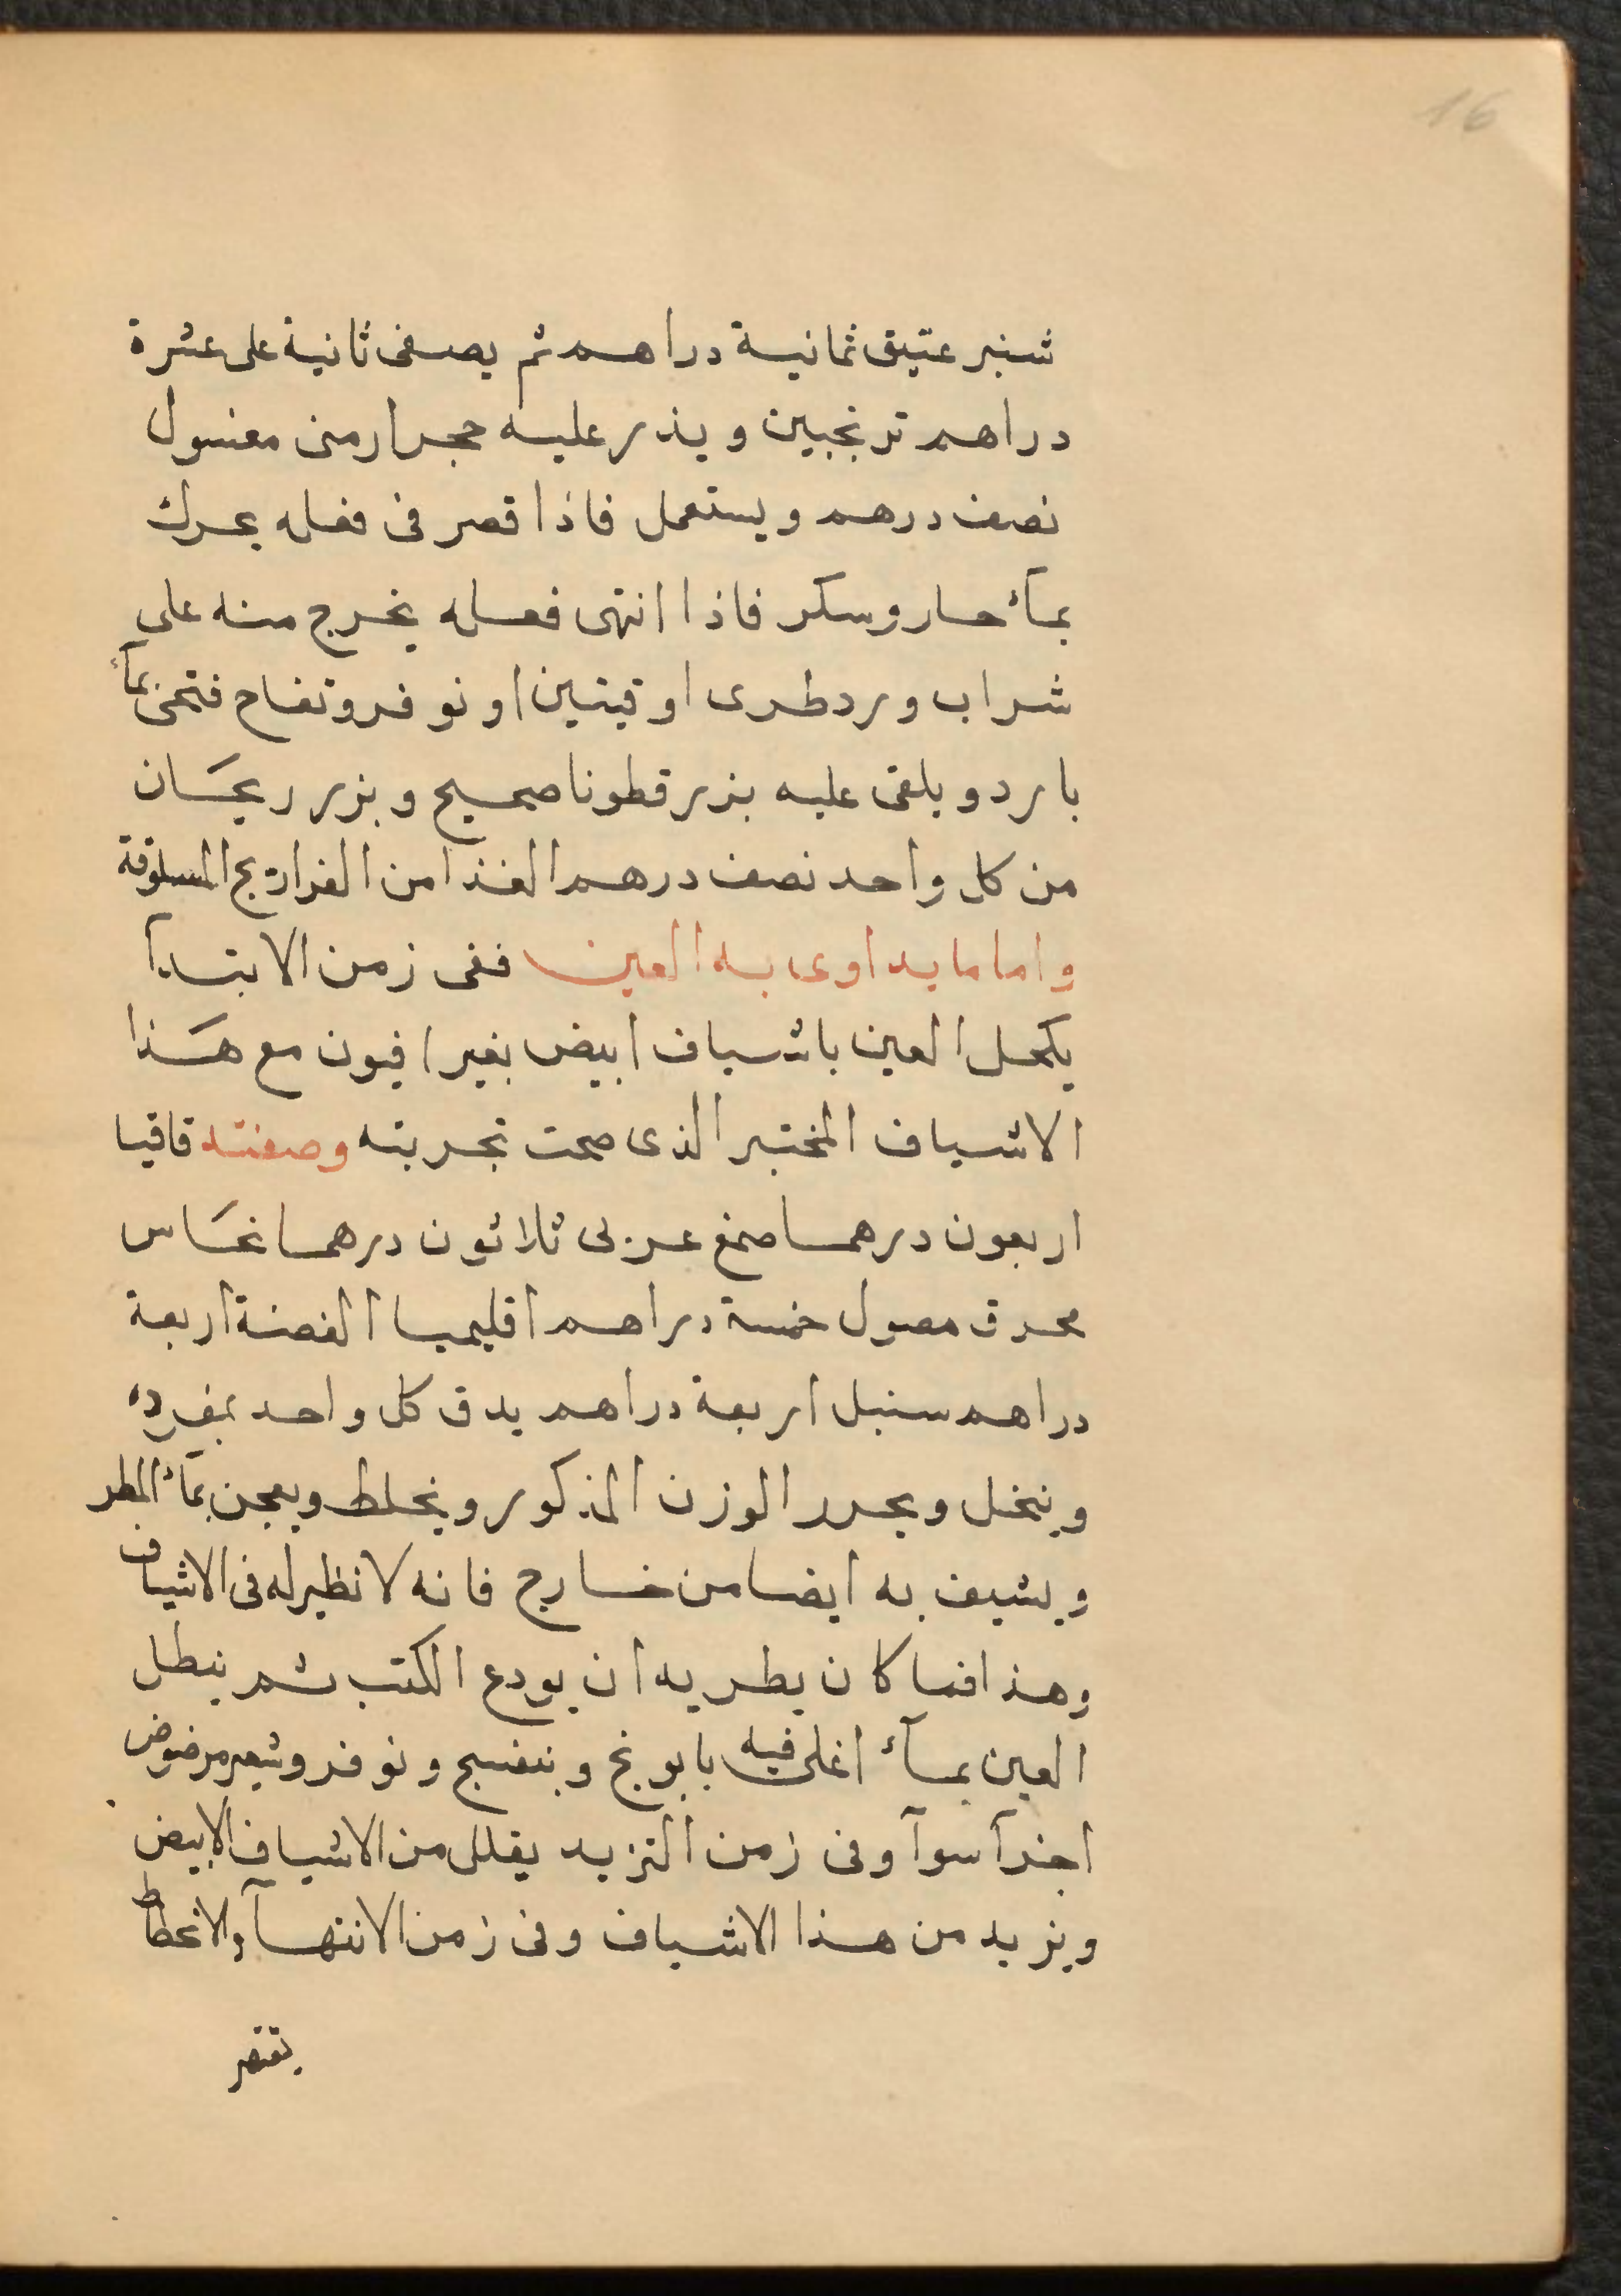 16
شنبر عتيق ثمانية دراهم ثم يصفى ثانية على عشرة
دراهم ترنجبين ويذر عليه حجر ارمنى مغسول
نصف درهم ويستعمل فاذا قصر فى فعله يحرك
بمآء حار وسكر فاذا انتهى فعله يخرج منه على
شراب ورد طرى اوقيتين او نوفر وتفاح فتحى بمآء
بارد ويلقى عليه بزر قطونا صحيح وبزر ريحان
من كل واحد نصف درهم الغذا من الفراريج المسلوقة
واما ما يداوى به العين ففى زمن الابتدآ
يكحل العين باشياف ابيض بغير افيون مع هذا
الاشياف المختبر الذى صحت تجربته وصفته قاقيا
اربعون درهما صمغ عربى ثلاثون درهما نحاس
محرق مصول خمسة دراهم اقليميا الفضة اربعة
دراهم سنبل اربعة دراهم يدق كل واحد بمفرده
وينخل ويحرر الوزن المذكور ويخلط ويعجن بمآء المطر
ويشيف به ايضا من خارج فانه لا نظير له فى الاشياف
وهذا فما كان يطريه ان يودع الكتب ثم ينطل
العين بمآء اغلى فيه بابونج وبنفسج ونوفر وشعير مرضوض
اجزآ سوآ وفى زمن التزيد يقلل من الاشياف الابيض
ويزيد من هذا الاشياف وفى زمن الانتهآ والانحطاط
يقتصر